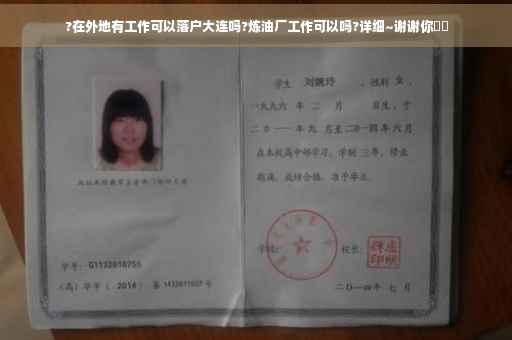 ?在外地有工作可以落户大连吗?炼油厂工作可以吗?详细~谢谢你
学生 刘婉玲 ，性别 女 ，
一九九六 年 二 月 日生，于
二〇一一 年 九 月至二〇一四年 六 月
在本校高中部学习，学制 三年，修业
期满，成绩合格，准予毕业。
学校： 校长：
学号： G1132010755
（高）毕字（ 2014 ）第 1432011607 号
二〇一四年 七 月